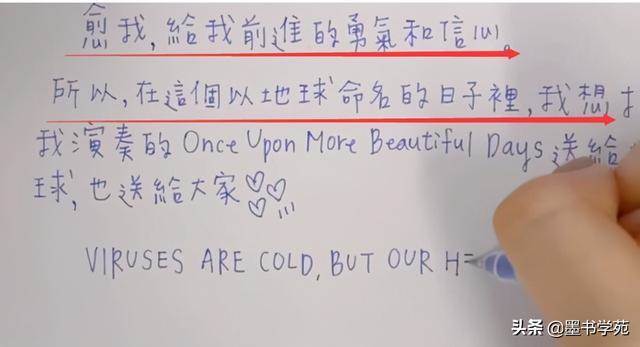 愈我,給我前進的勇氣和信心。
所以,在這個以地球命名的日子裡,我想
我演奏的 Once Upon More Beautiful Days 送給
球,也送給大家
VIRUSES ARE COLD, BUT OUR H
头条 @墨书学苑